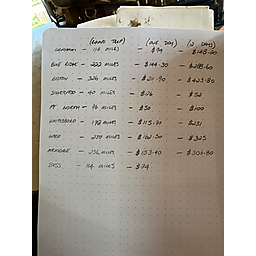 (ROUND TRIP) (ONE DAY) (2 DAYS)
114 MILES - $74 - $148.20
BLUE RIDGE - 222 MILES - $144.30 - $288.60
- 326 MILES - $211.90 - $423.80
- 40 MILES - $26 - $52
FT WORTH - 76 MILES - $50 - $100
WHITESBORO - 178 MILES - $115.70 - $231
WACO - 250 MILES - $162.50 - $325
- 236 MILES - $153.40 - $306.80
ENNIS - 114 MILES - $74